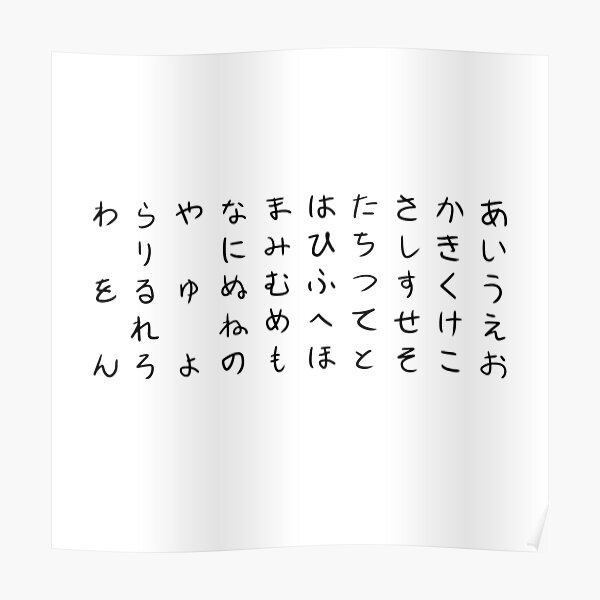 あいうえお
かきくけこ
さしすせそ
たちつてと
はひふへほ
まみむめも
なにぬねの
や ゆ よ
らりるれろ
わ を ん